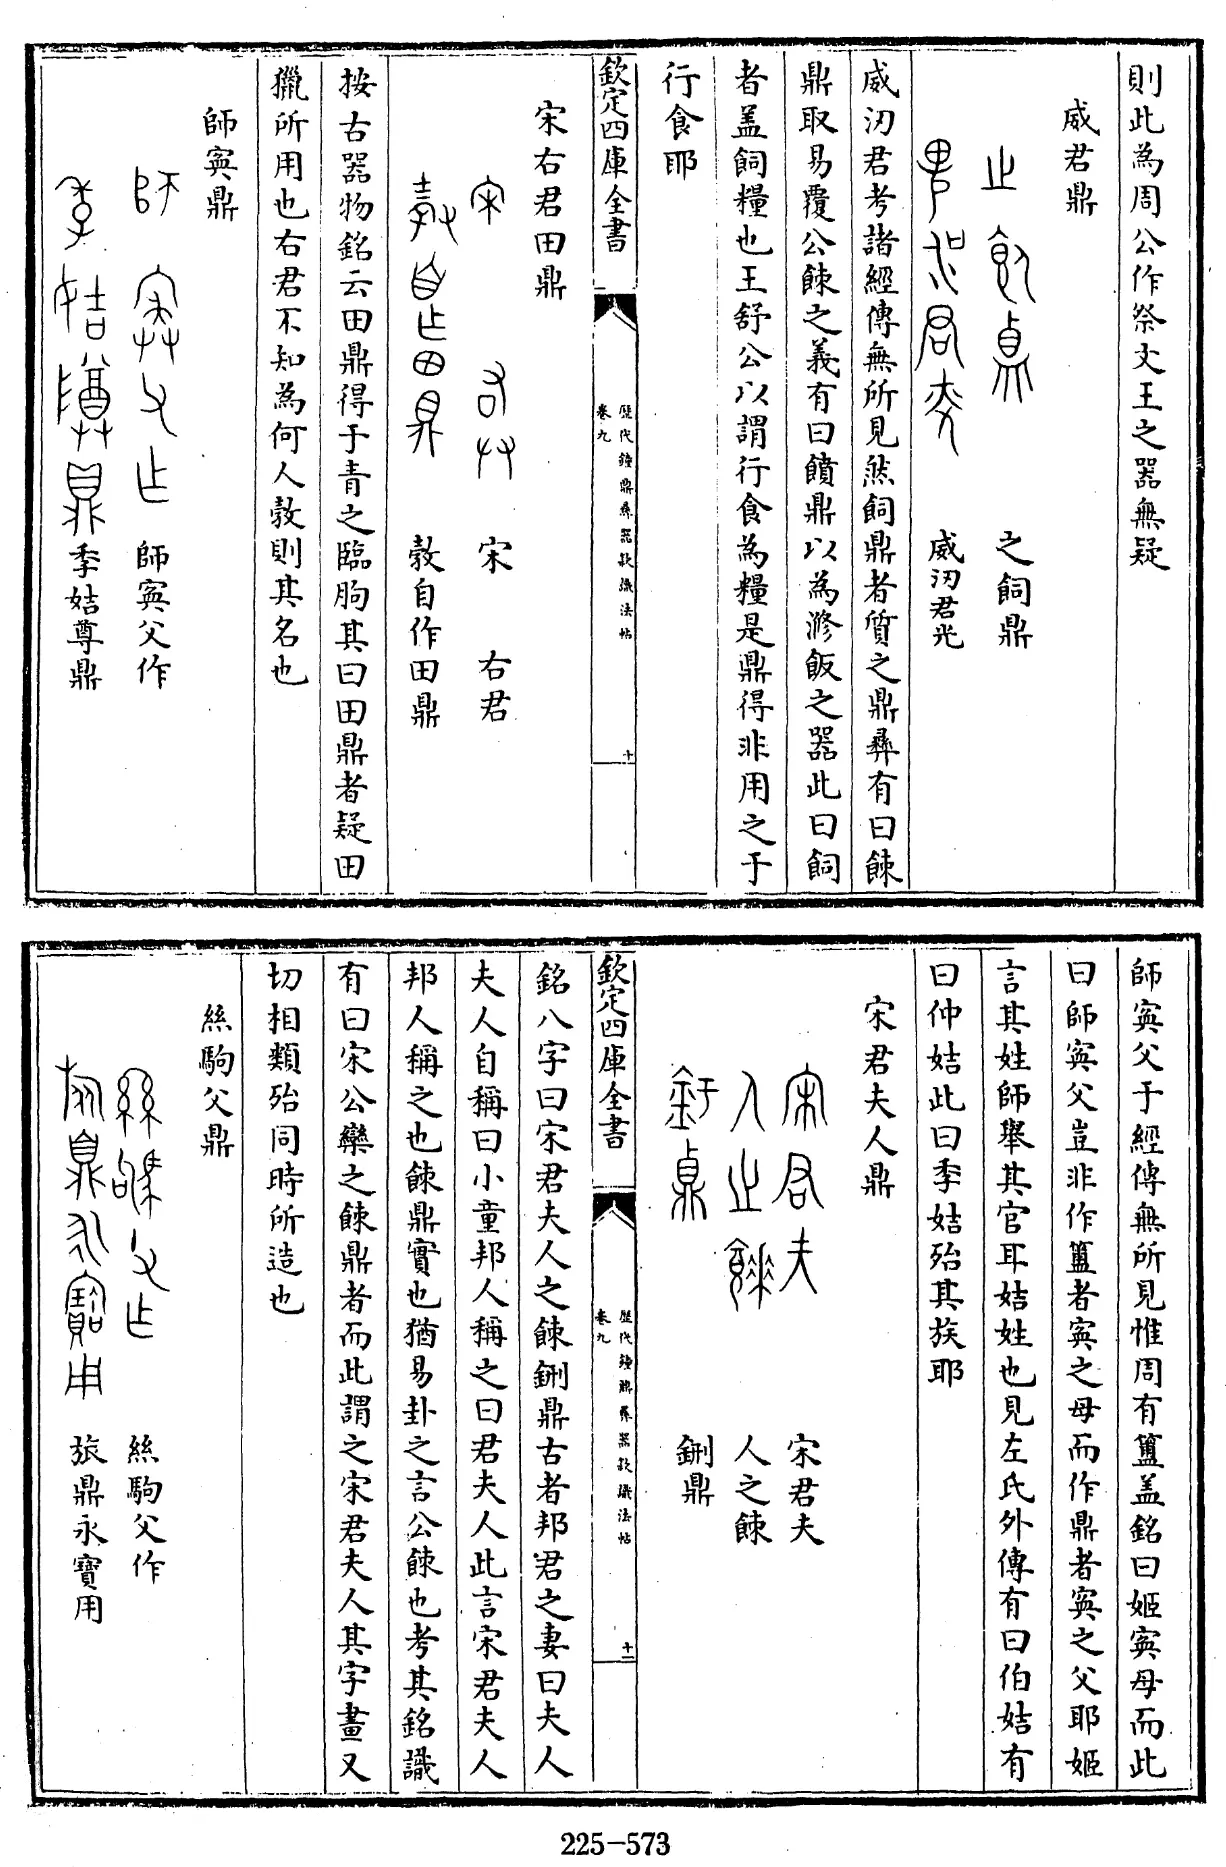 則此為周公作祭文王之器無疑
威君鼎
之飼鼎
威㓞君光
考諸經傳無所見然飼鼎者質之鼎彛有曰餗
鼎取易覆公餗之義有曰饙鼎以為滫飯之器此曰飼
者盖飼糧也王舒公以謂行食為糧是鼎得非用之于
行食耶
欽定四庫全書
歴代鐘鼎彛器款識法帖
卷九
十
宋右君田鼎
宋 右君
敎自作田鼎
按古器物銘云田鼎得于青之臨朐其曰田鼎者疑田
獵所用也右君不知為何人敎則其名也
師寏鼎
師寏父作
季姞尊鼎
師寏父于經傳無所見惟周有簠盖銘曰姬寏母而此
曰師寏父豈非作簠者寏之母而作鼎者寏之父耶姬
言其姓師舉其官耳姞姓也見左氏外傳有曰伯姞有
曰仲姞此曰季姞殆其族耶
宋君夫人鼎
宋君夫
人之餗
鉶鼎
欽定四庫全書
歴代鐘鼎彛器款識法帖
卷九
十一
銘八字曰宋君夫人之餗鉶鼎古者邦君之妻曰夫人
夫人自稱曰小童邦人稱之曰君夫人此言宋君夫人
邦人稱之也餗鼎實也猶易卦之言公餗也考其銘識
有曰宋公欒之餗鼎者而此謂之宋君夫人其字畫又
切相類殆同時所造也
絲駒父鼎
絲駒父作
旅鼎永寶用
225-573